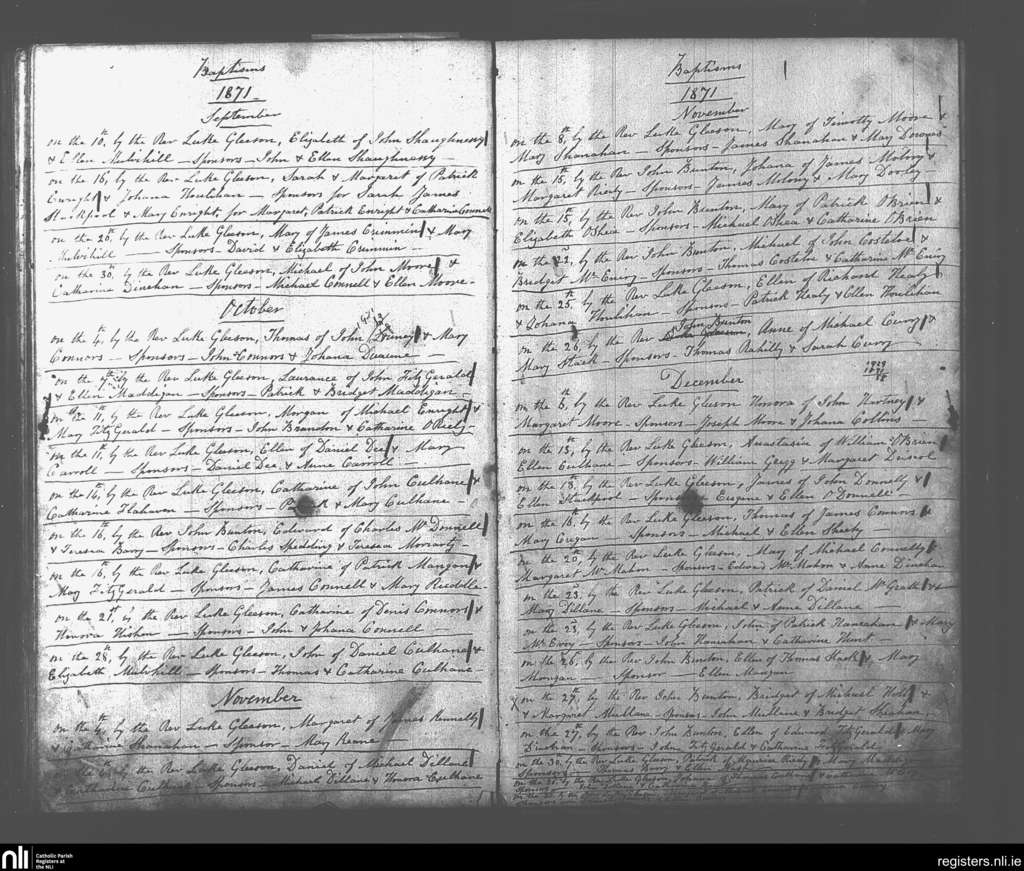 Baptisms
1871
September
on the 10th, by the Rev Luke Gleeson, Elizabeth of John Shaughnessy
& Ellen Mulvihill - Sponsors - John & Ellen Shaughnessy
on the 16, by the Rev Luke Gleeson, Sarah & Margaret of Patrick
Enright & Johana Houlihan - Sponsors for Sarah James
& Mary Enright, for Margaret, Patrick Enright & Catharine Connell
on the 20th, by the Rev Luke Gleeson, Mary of James Crimmin & Mary
Mulvihill - Sponsors - David & Elizabeth Crimmin -
on the 30, by the Rev Luke Gleeson, Michael of John Moore &
Catharine Dinehan - Sponsors - Michael Connell & Ellen Moore -
October
on the 4, by the Rev Luke Gleeson, Thomas of John & Mary
Connors - Sponsors - John Connors & Johana
on the 7th by the Rev Luke Gleeson, Laurance of John FitzGerald
& Ellen Maddigan - Sponsors - Patrick & Bridget Maddigan -
on the 11, by the Rev Luke Gleeson, Morgan of Michael Enright &
Mary FitzGerald - Sponsors - John Brandon & Catharine O'Riely -
on the 11, by the Rev Luke Gleeson, Ellen of Daniel Dee & Mary
Carroll - Sponsors - Daniel Dee, & Anne Carroll -
on the 16, by the Rev Luke Gleeson, Catharine of John Culhane &
Catharine Flahaven - Sponsors - & Mary Culhane -
on the 16, by the Rev John Bunton, Edward of Charles McDonnell
& Teresa Barry - Sponsors - Charles Spedding & Teresa Moriarty -
on the 16, by the Rev Luke Gleeson, Catharine of Patrick Mangan &
Mary FitzGerald - Sponsors - James Connell & Mary Ruddle
on the 21st, by the Rev Luke Gleeson, Catharine of Denis Connors &
Honora - Sponsors - John & Johana Connell -
on the 28, by the Rev Luke Gleeson, John of Daniel Culhane &
Elizabeth Mulvihill - Sponsors - Thomas & Catharine Culhane -
November
on the 4, by the Rev Luke Gleeson, Margaret of James Kennelly
& Catharine Shanahan - Sponsor - Mary Keane -
on the 6, by the Rev Luke Gleeson, Daniel of Michael Dillane
& Catharine Culhane - Sponsors - Michael Dillane & Honora Culhane
Baptisms
1871
November
on the 8th, by the Rev Luke Gleeson, Mary of Timothy Moore &
Mary Shanahan - Sponsors - James Shanahan & Mary
on the 15, by the Rev John Bunton, Johana of James Molony &
Margaret - Sponsors - James Molony & Mary Dooley -
on the 15, by the Rev John Bunton, Mary of Patrick O'Brien &
Elizabeth O'Shea - Sponsors - Michael O'Shea & Catharine O'Brien
on the 22, by the Rev John Bunton, Michael of John Costeloe &
Bridget McEvoy - Sponsors - Thomas Costeloe & Catharine McEvoy
on the 25, by the Rev Luke Gleeson, Ellen of Richard Healy
& Johana Houlihan - Sponsors - Patrick Healy & Ellen Houlihan
John Bunton
on the 26, by the Rev Anne of Michael &
Mary Stack - Sponsors - Thomas Rahilly & Sarah
December
on the 6, by the Rev Luke Gleeson Honora of John Hartney &
Margaret Moore - Sponsors - Joseph Moore & Johana Collins
on the 13, by the Rev Luke Gleeson, Anastasia of William O'Brien
Ellen Culhane - Sponsors - William & Margaret
on the 13, by the Rev Luke Gleeson, James of John Donnelly &
Ellen Stackpool - Eugene & Ellen O'Donnell -
on the 16, by the Rev Luke Gleeson, Thomas of James Connors &
Mary - Sponsors - Michael & Ellen Sheehy -
on the 20, by the Rev Luke Gleeson, Mary of Michael Connelly &
Margaret McMahon - Sponsors - Edward McMahon & Anne Dinehan
on the 23, by the Rev Luke Gleeson, Patrick of Daniel McGrath &
Mary Dillane - Sponsors - Michael & Anne Dillane -
on the 23, by the Rev Luke Gleeson, John of Patrick Hanrahan & Mary
McEvoy - Sponsors - John Hanrahan & Catharine Hunt -
on the 26, by the Rev John Bunton, Ellen of Thomas Stack & Mary
Mangan - Sponsor - Ellen Mangan
on the 27, by the Rev John Bunton, Bridget of Michael &
Margaret Mullane - Sponsors - John Mullane & Bridget Sheahan
on the 27, by the Rev John Bunton, Ellen of Edward FitzGerald & Mary
Dinehan - Sponsors - John FitzGerald & Catharine FitzGerald
on the 30, by the Rev Luke Gleeson, Patrick of Maurice & Mary
nli
Catholic Parish
Registers at
the NLI
registers.nli.ie